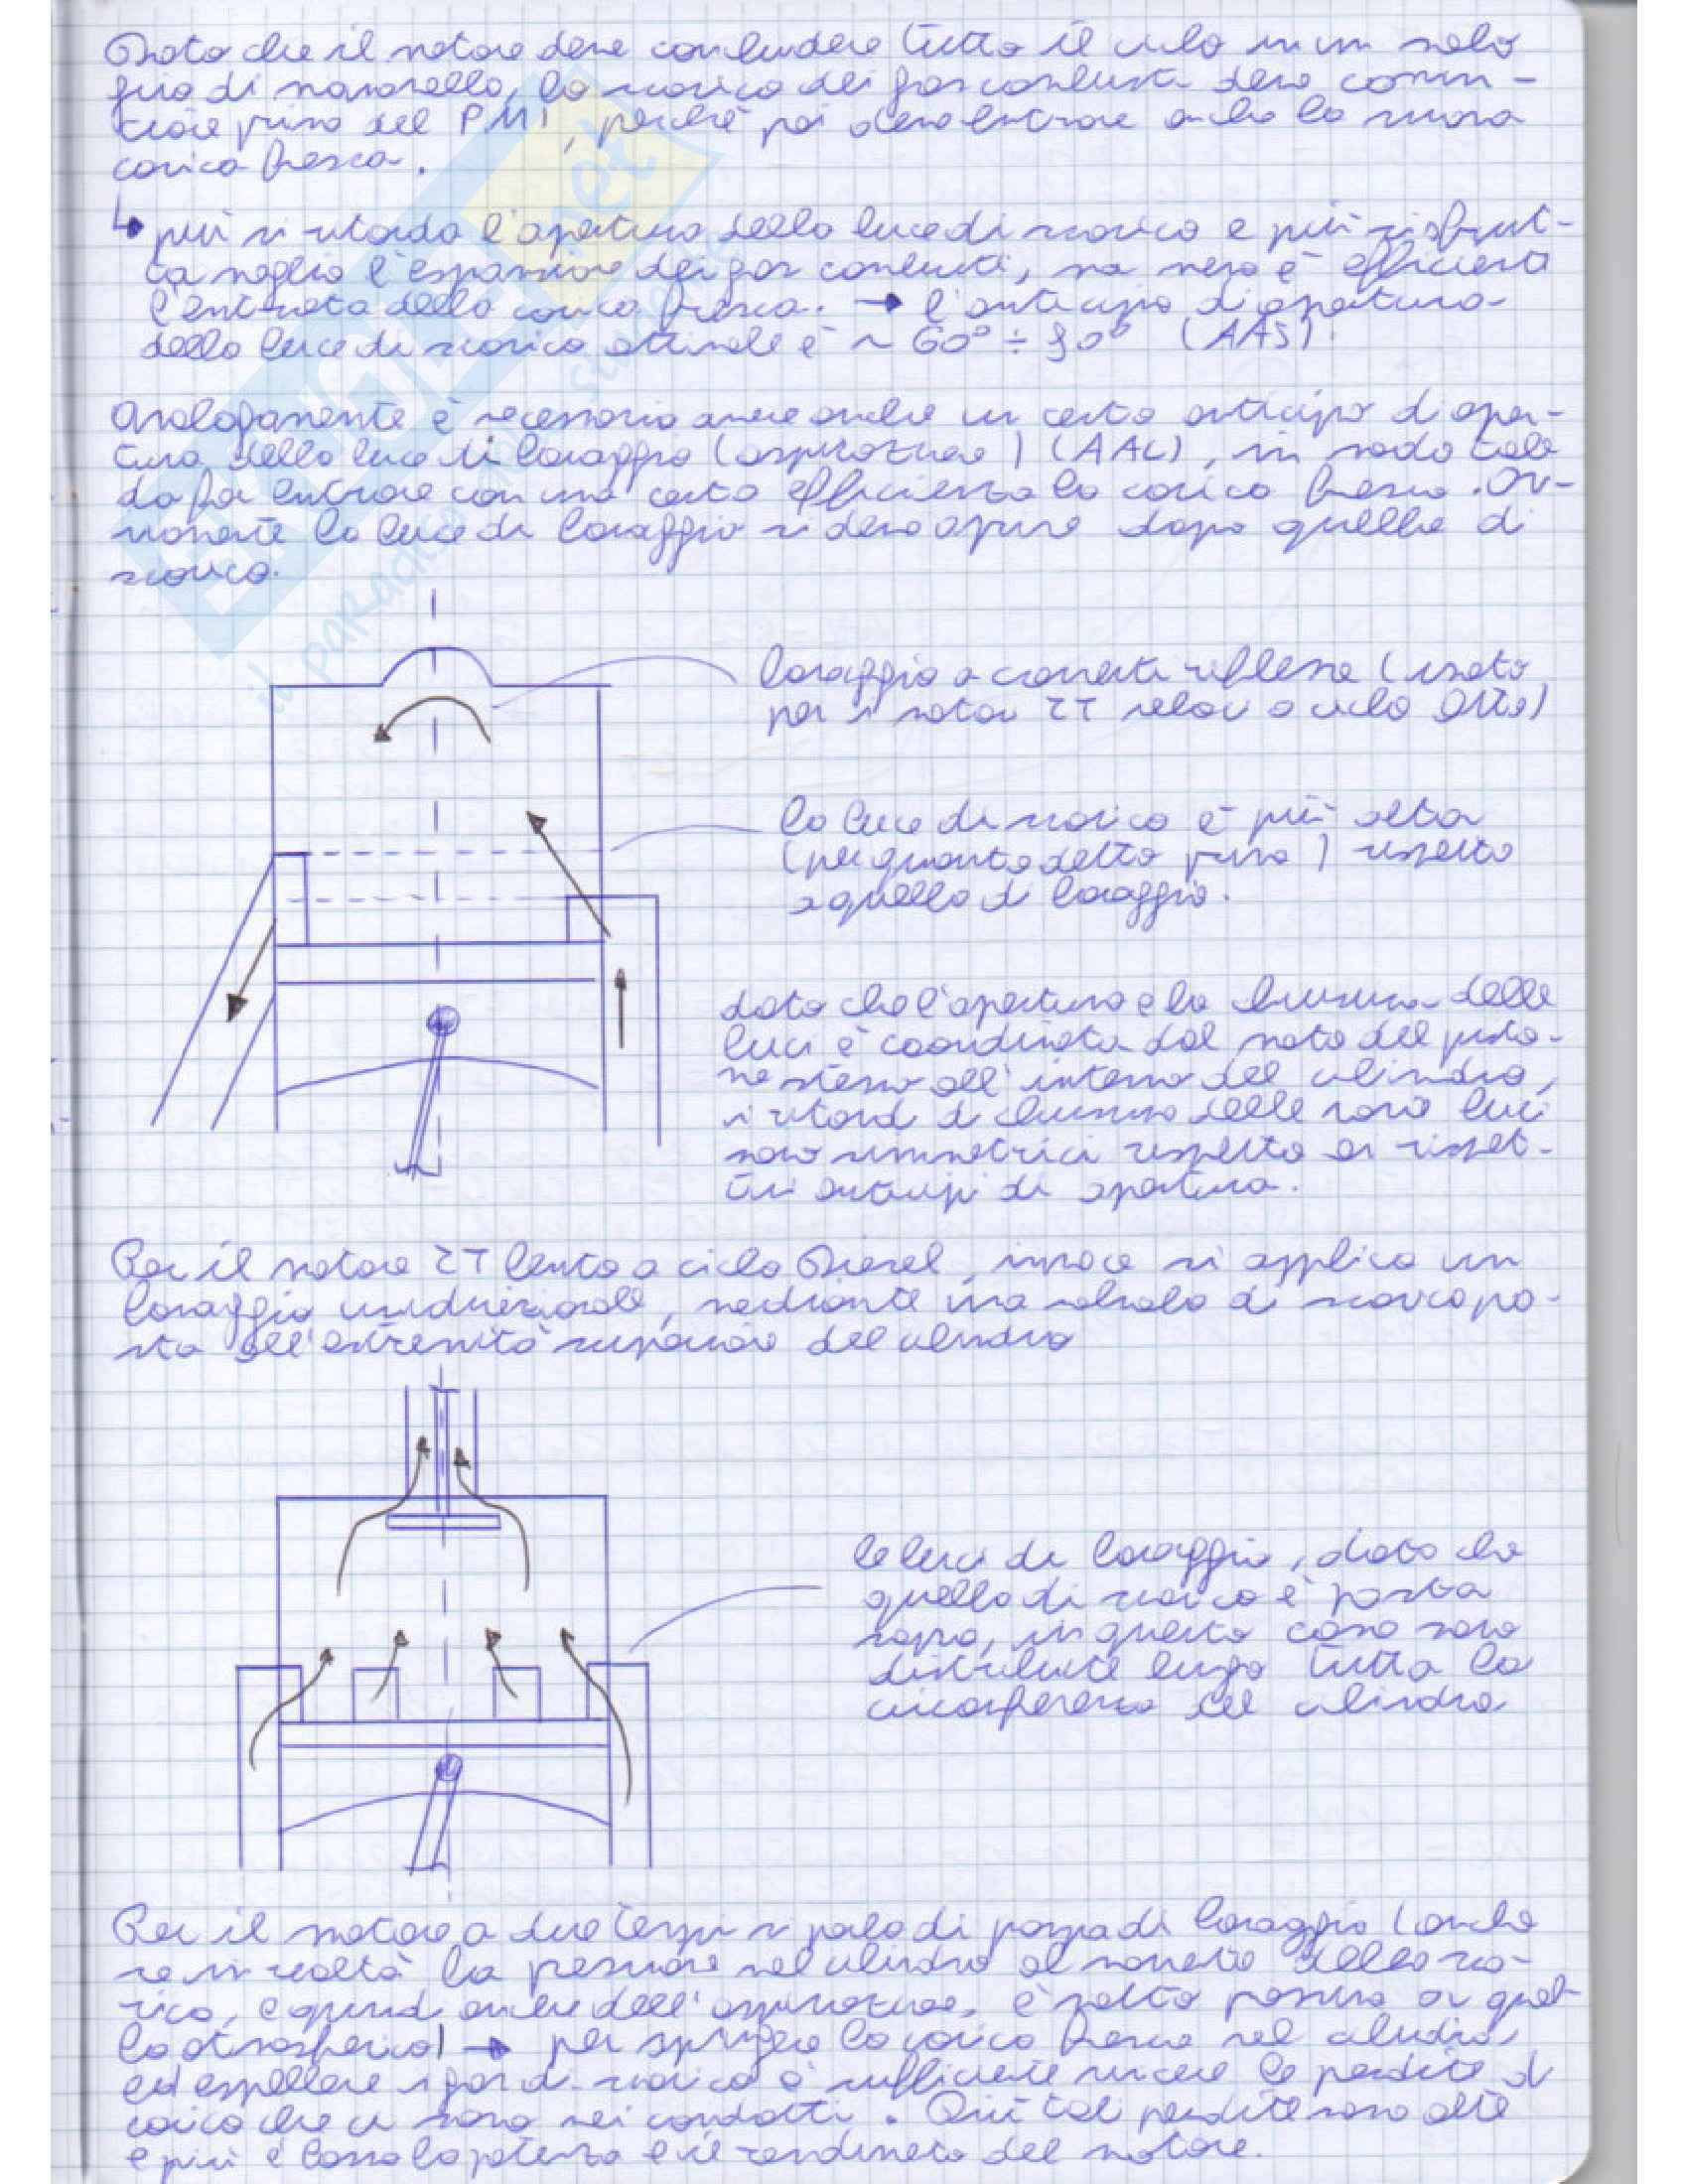 Dato che il motore deve concludere tutto il ciclo in un solo
giro di manovella, lo scarico dei gas combusti deve comin-
ciare prima del PMI, perché poi deve entrare anche la nuova
carica fresca.
↳ più si ritarda l'apertura della luce di scarico e più si sfrut-
ta meglio l'espansione dei gas combusti, ma meno è efficiente
l'entrata della carica fresca. → l'anticipo di apertura
della luce di scarico ottimale è ~ 60° ÷ 80° (AAS)
Analogamente è necessario avere anche un certo anticipo di aper-
tura della luce di lavaggio (aspirazione) (AAL), in modo tale
da far entrare con una certa efficienza la carica fresca. Ov-
viamente la luce di lavaggio si deve aprire dopo quella di
scarico.
lavaggio a correnti riflesse (usato
per i motori 2T veloci a ciclo Otto)
la luce di scarico è più alta
(per quanto detto prima) rispetto
a quella di lavaggio.
dato che l'apertura e la chiusura delle
luci è coordinata dal moto del pisto-
ne stesso all'interno del cilindro,
i ritardi di chiusura delle varie luci
sono simmetrici rispetto ai rispet-
tivi anticipi di apertura.
Per il motore 2T lento a ciclo Diesel, invece si applica un
lavaggio unidirezionale, mediante una valvola di scarico po-
sta all'estremità superiore del cilindro
le luci di lavaggio, dato che
quella di scarico è posta
sopra, in questo caso sono
distribuite lungo tutta la
circonferenza del cilindro
Per il motore a due tempi si parla di pompa di lavaggio (anche
se in realtà la pressione nel cilindro al momento dello sca-
rico, e quindi anche dell'aspirazione, è molto prossima a quel-
la atmosferica) → per spingere la carica fresca nel cilindro
ed espellere i gas di scarico è sufficiente vincere le perdite di
carico che ci sono nei condotti. Più tali perdite sono alte
e più è bassa la potenza e il rendimento del motore.